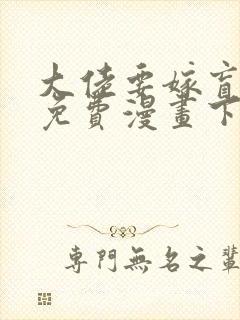 大佬要嫁盲
免費漫畫下
專門無名之輩